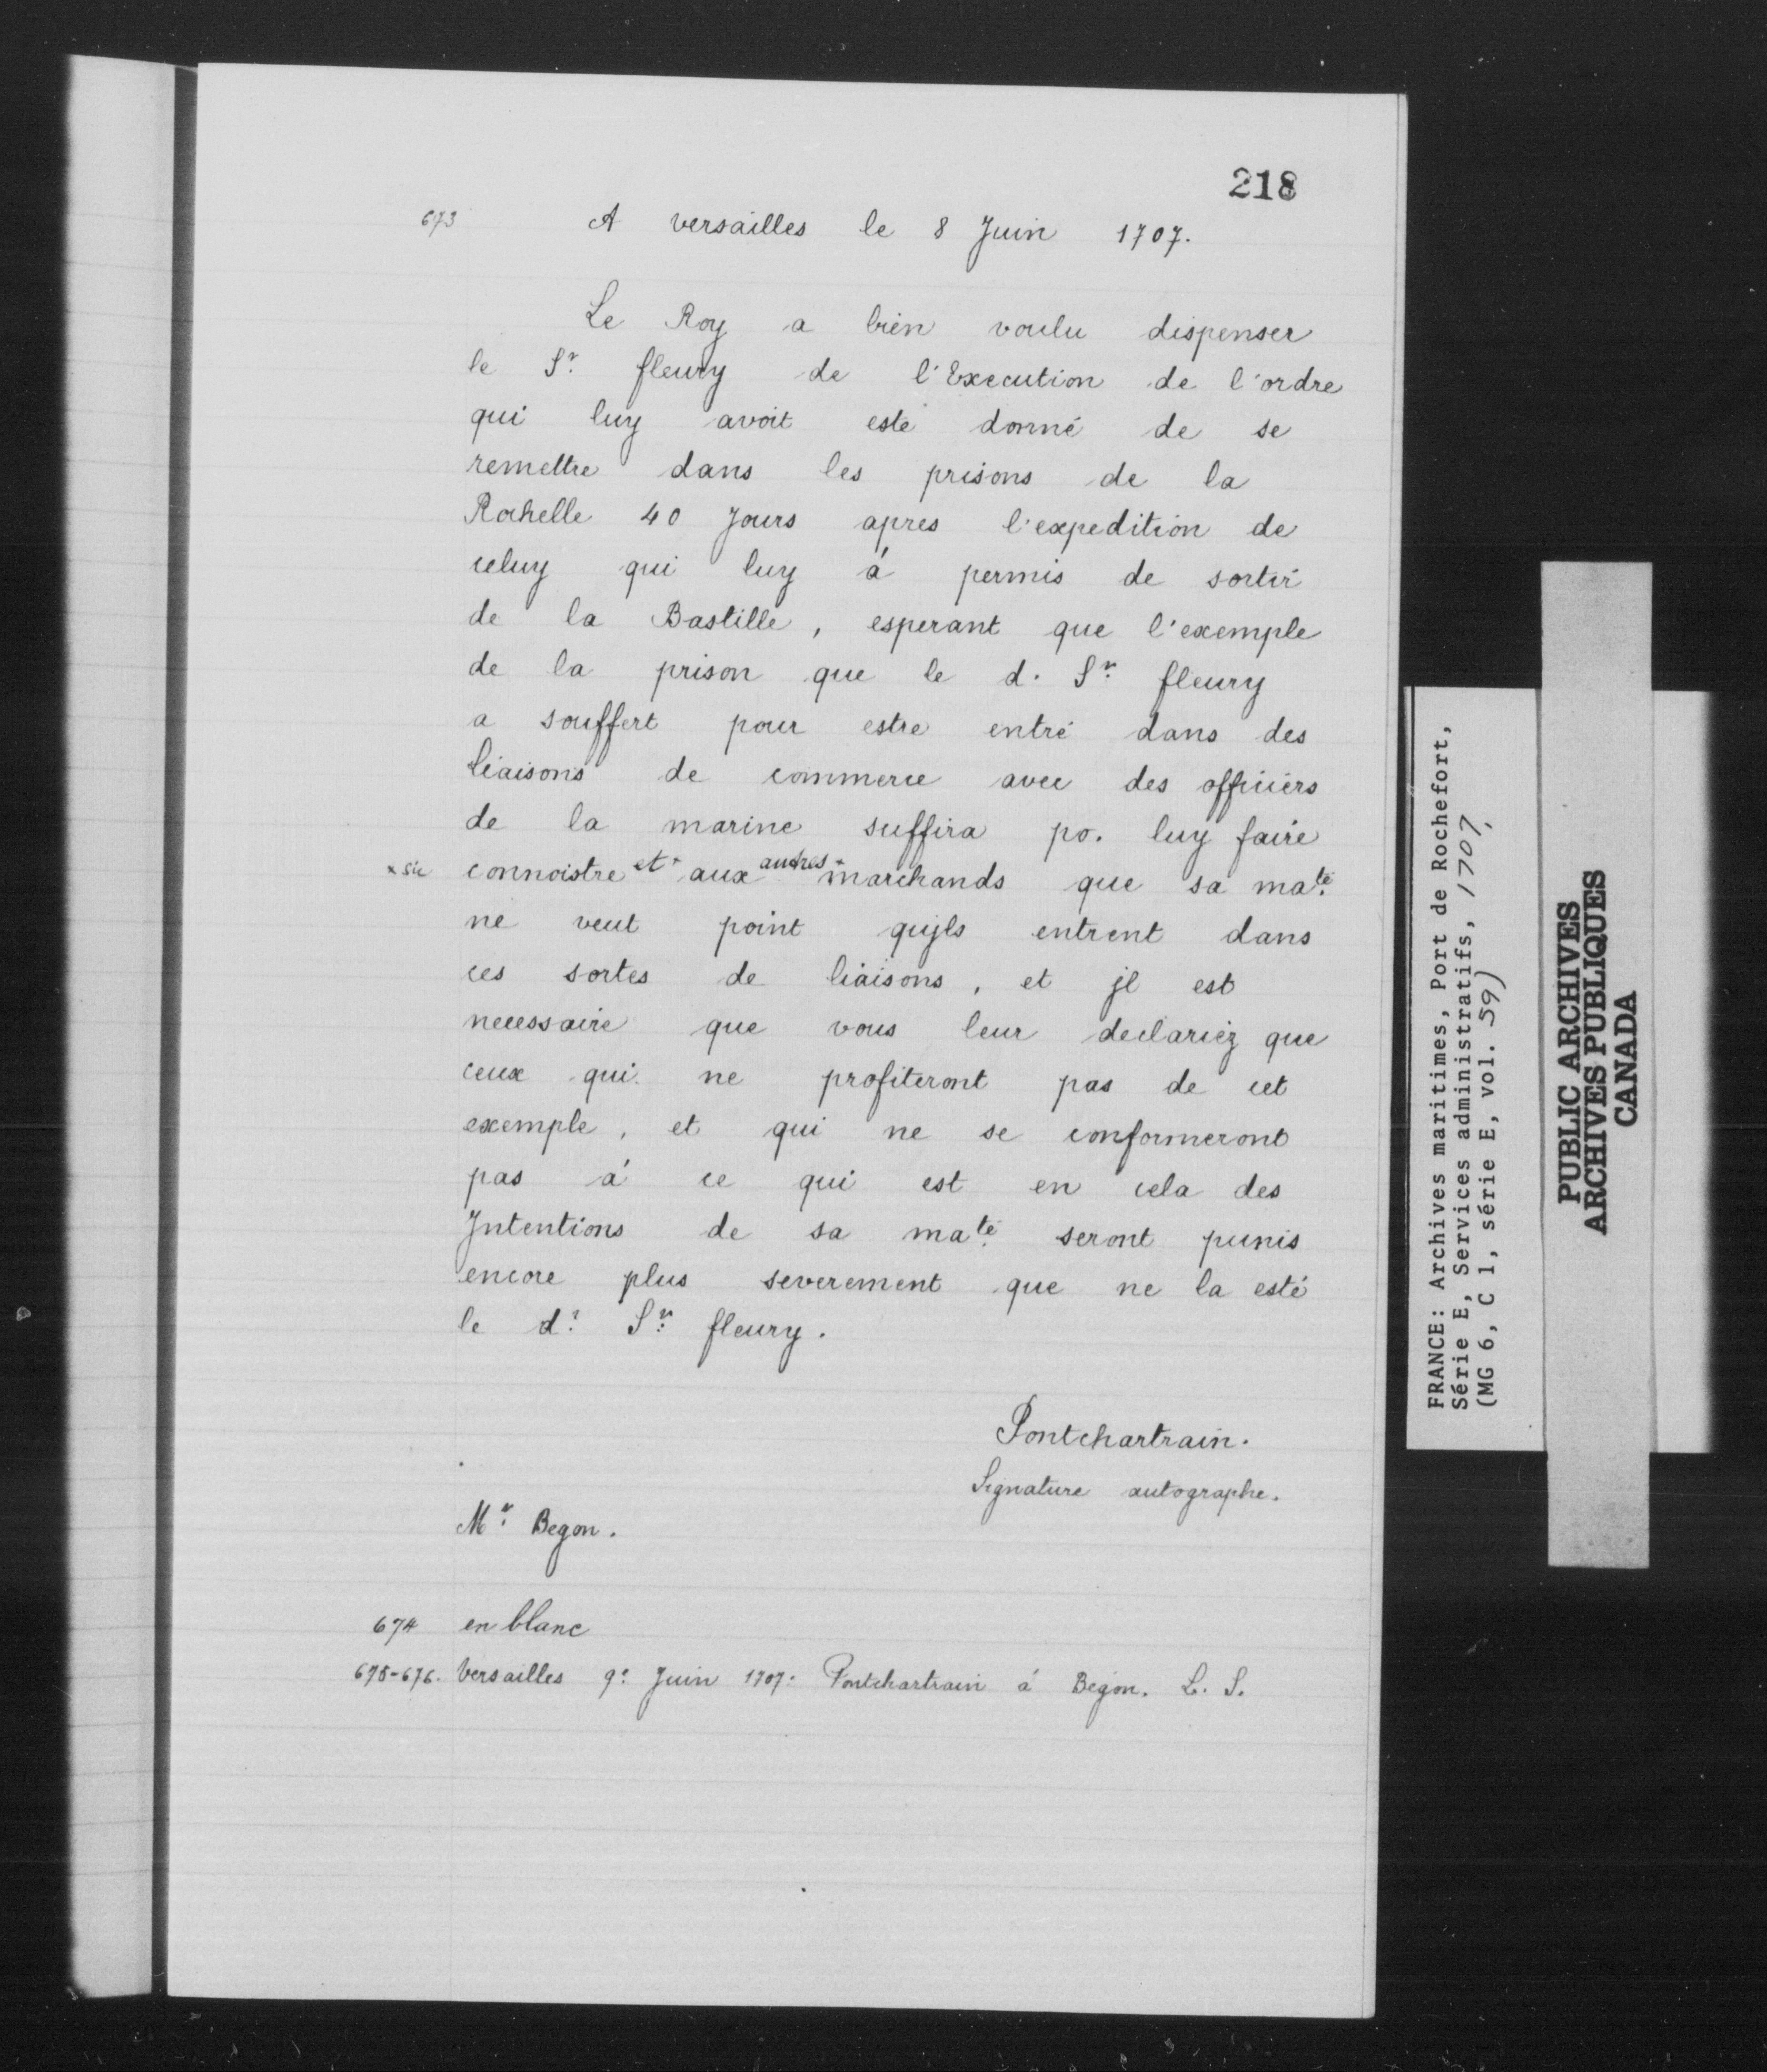 218
673 A versailles le 8 Juin 1707.
Le Roy a bien voulu dispenser
le Sr. fleury de l'Execution de l'ordre
qui luy avoit esté donné de se
remettre dans les prisons de la
Rochelle 40 Jours apres l'expedition de
celuy qui luy á permis de sortir
de la Bastille, esperant que l'exemple
de la prison que le d. Sr. fleury
a souffert pour estre entré dans des
liaisons de commerce avec des officiers
de la marine suffira po. luy faire
x sic connoistre et x aux autres x marchands que sa maté
ne veut point qujls entrent dans
ces sortes de liaisons, et jl est
necessaire que vous leur declariez que
ceux qui ne profiteront pas de cet
exemple, et qui ne se conformeront
pas á ce qui est en cela des
Jntentions de sa maté seront punis
encore plus severement que ne la esté
le d? Sr. fleury.
Pontchartrain.
Signature autographe.
Mr. Begon.
674 en blanc
675-676. Versailles 9e Juin 1707: Pontchartrain á Begon. L. S.
FRANCE: Archives maritimes, Port de Rochefort,
Série E, Services administratifs, 1707,
(MG 6, C 1, série E, vol. 59)
PUBLIC ARCHIVES
ARCHIVES PUBLIQUES
CANADA